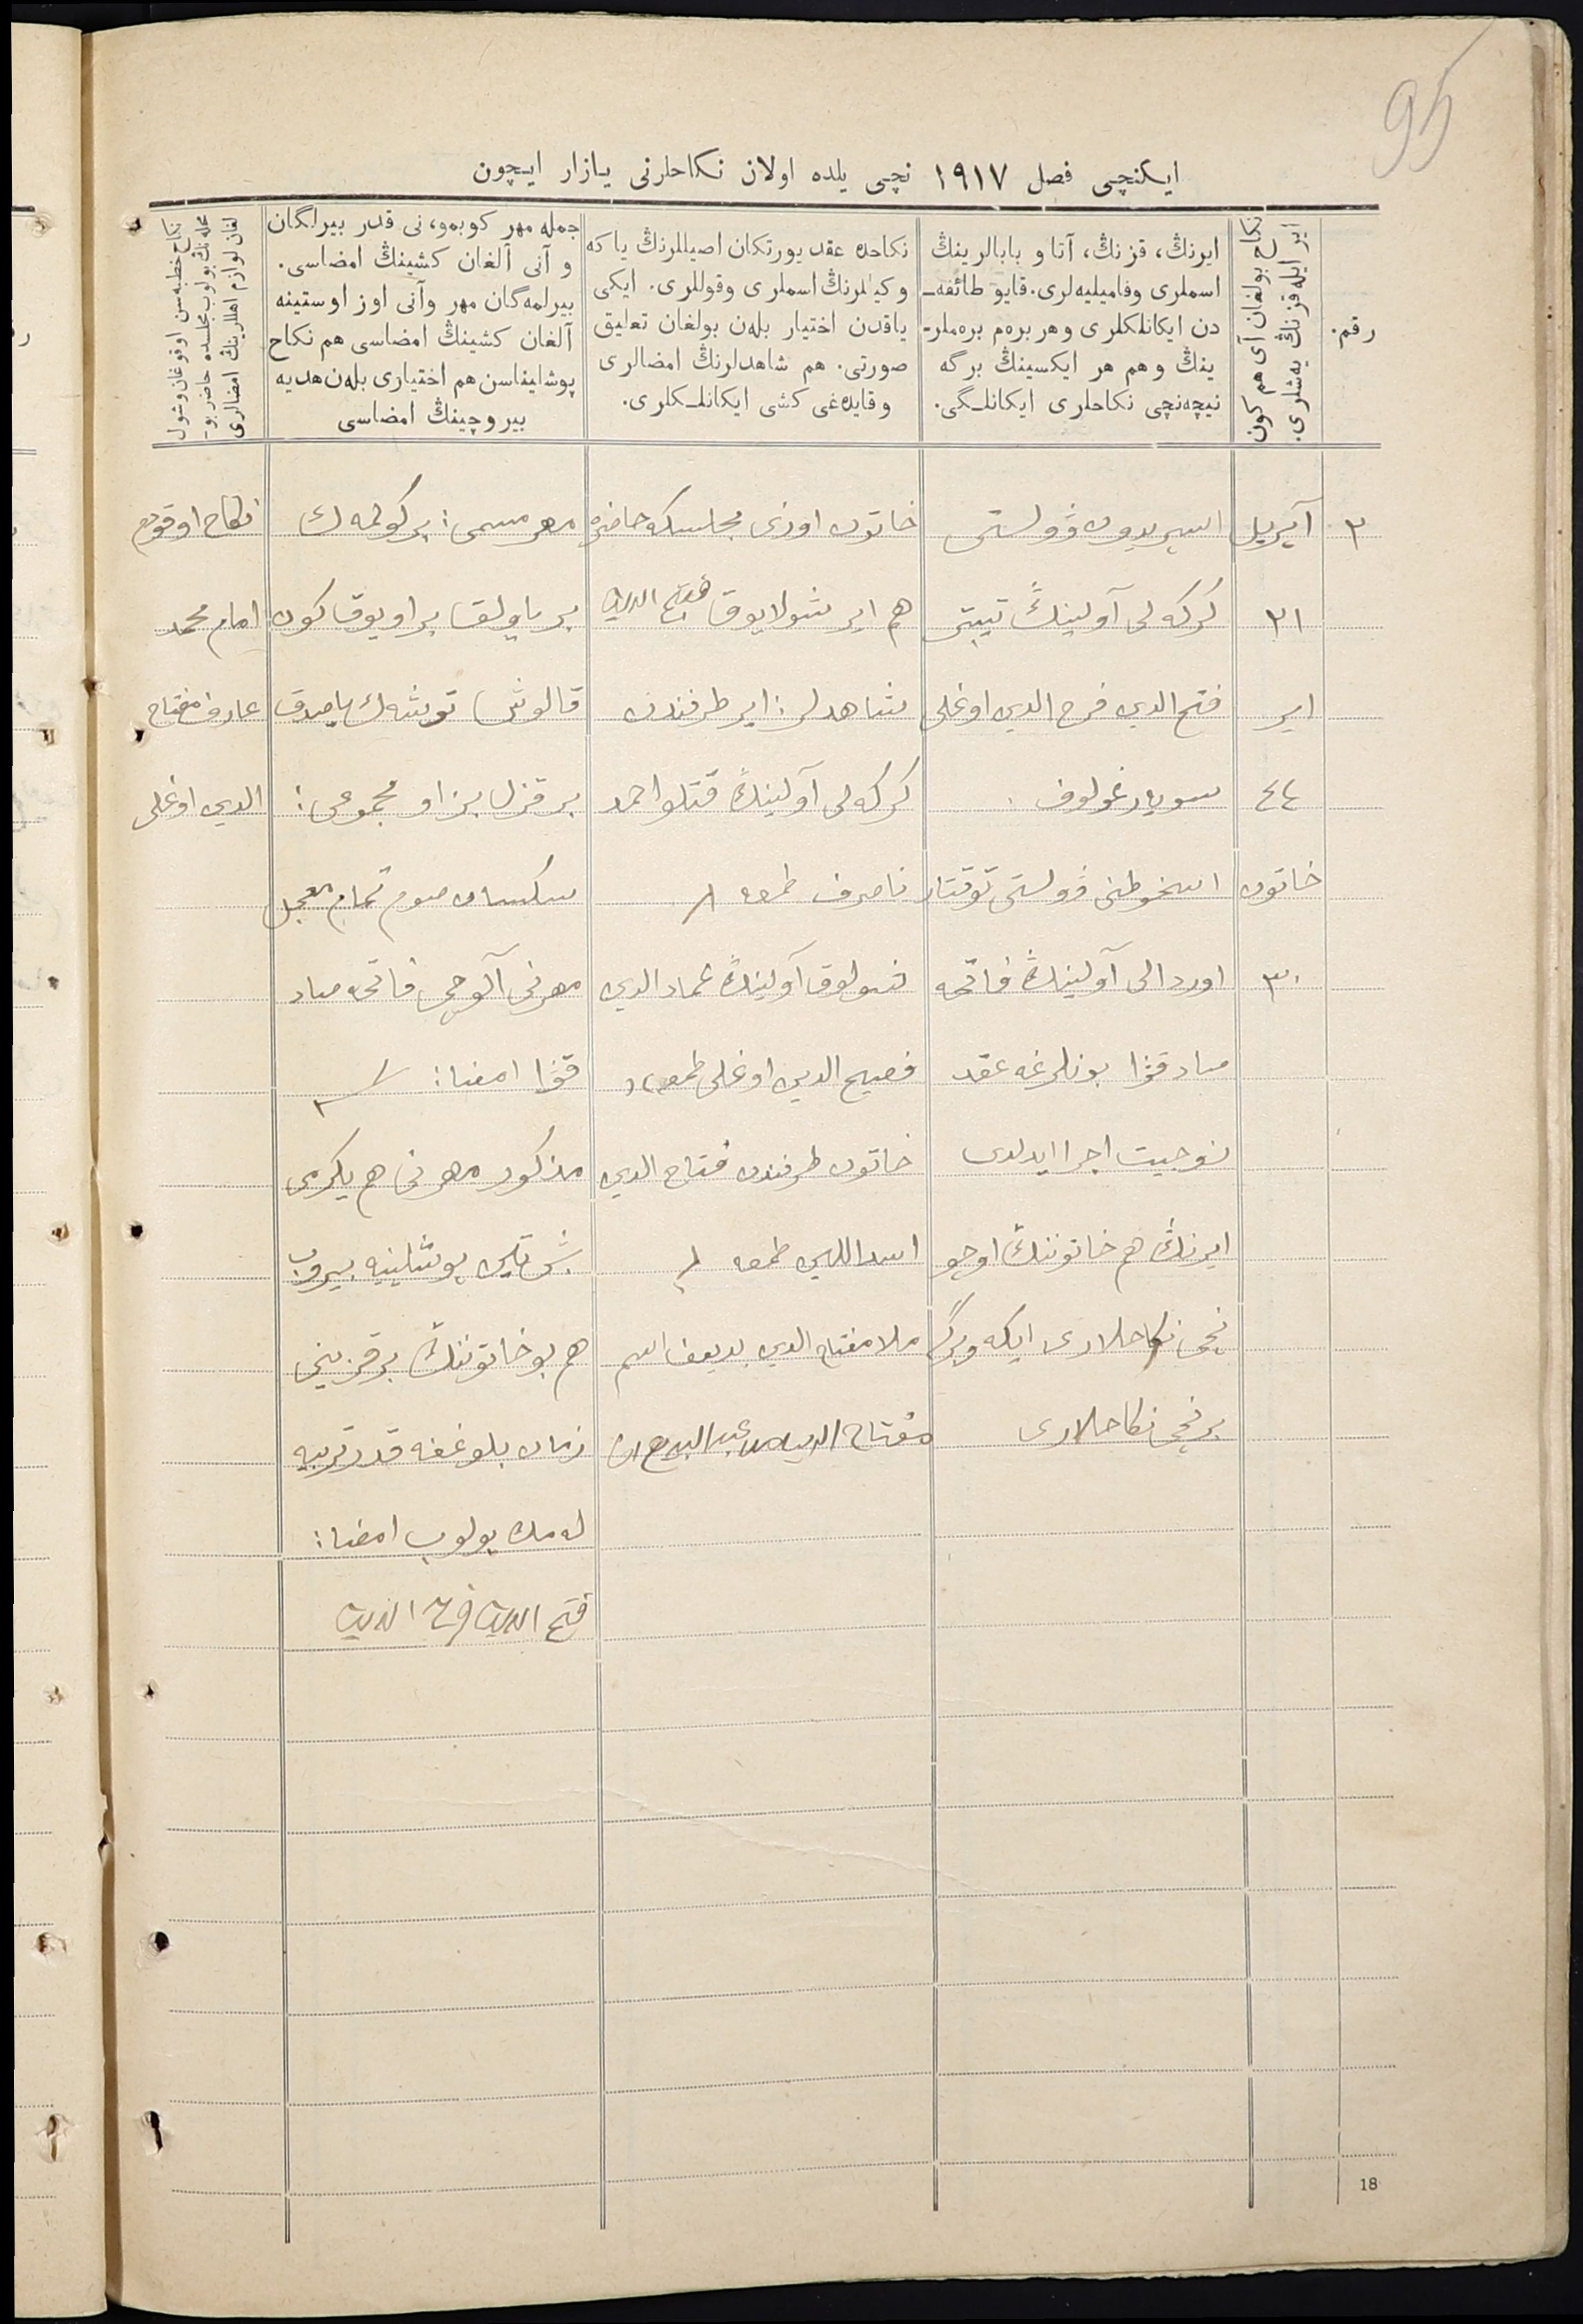 95
ایکنچی فصل ١٩١٧ نچی یلده اولان نکاحلرنی یازار ایچون
رقم.
نکاح بولغان آی هم کون
ایر ایله قزنڭ یه‌شلری.
ایرنڭ، قزنڭ، آتا و بابالرینڭ
اسملری وفامیلیه‌لری. قایو طائفه‌ـ
دن ایکانلکلری و هر بره‌م بره‌ملرـ
ینڭ و هم هر ایکسینڭ برگه
نیچه‌نچی نکاحلری ایکانلـگی.
نکاحده عقد یورتکان اصیللرنڭ یا که
و کیللرنڭ اسملری وقوللری. ایکی
یاقدن اختیار بله‌ن بولغان تعلیق
صورتی. هم شاهدلرنڭ امضالری
و قایده‌غی کشی ایکانلـکلری.
جمله مهر کوبمو، نی قدر بیرلگان
و آنی آلغان کشینڭ امضاسی.
بیرلمه‌گان مهر وآنی اوز اوستینه
آلغان کشینڭ امضاسی هم نکاح
پوشلیناسن هم اختیاری بله‌ن هدیه
بیروچینڭ امضاسی
نکاح خطبه‌سن اوقوغان وشول
محله‌نڭ بولوب مجلسده حاضر بوـ
لغان لوازم اهللرینڭ امضالری
٣
آپریل
٣١
ایر
٤٤
خاتون
٣٠
اسپریدون ڤولستی
کرکه‌لی آولینڭ تیپتر
فتح الدین فرح الدین اوغلی
سویارغولوف
ڤولستی توقتار
اوردالی آولینڭ فاتحه
بونلرغه عقد
زوجیت اجرا ایدلدی
ایرنڭ هم خاتوننڭ اوچو
نچی نکاحلاری ایکه و برگه
برنچی نکاحلاری
خاتون اوزی مجلسکه حاضره
هم ایر شولایوق فتح الدین
شاهدلر: ایر طرفندن
کرکه‌لی آولینڭ قتلو احمد
ناصروف طمعه
آولینڭ عماد الدین
فصیح الدین اوغلی طمعه
خاتون طرفندن مفتاح الدین
اسداللین طمعه
ملا مفتاح الدین بدیعف اسم
مفتاح الدین
مهر مسمی: بر کولمه‌ك
بر یاولق بر اویوق کون
قالوش توشه‌ك یاصدق
بر قزل بزاو مجموعی:
سکسان صوم تمام معجل
مهرنی آلوچی فاتحه
امضا:
مذکور مهرنی هم یکرمی
بش تین پوشلینه بیروب
هم بو خاتوننڭ بر قزینی
زمان بلوغغه قدر تربیه
له‌مك بولوب امضا:
فتح الدین فرح الدین
نکاح اوقودم
امام محمد
عارف مفتاح
الدین اوغلی
18